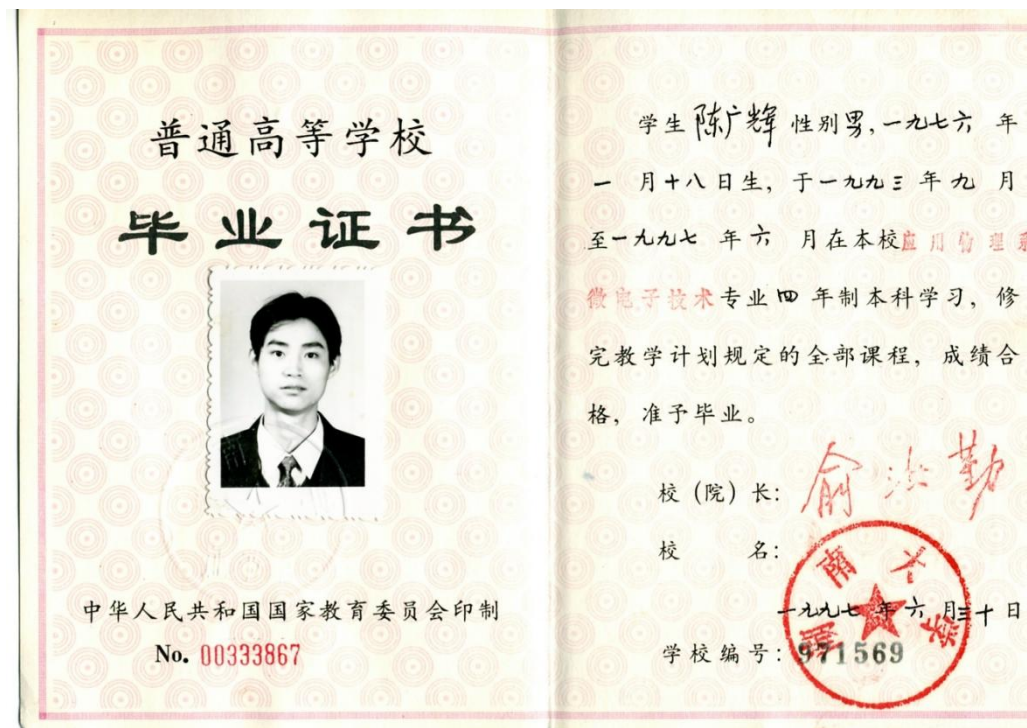 普通高等学校
毕业证书
中华人民共和国国家教育委员会印制
No. 00333867
学生陈广辉 性别男，一九七六 年
一 月十八日生，于一九九三年九 月
至一九九七 年六 月在本校应用物理系
微电子技术专业四 年制本科学习，修
完教学计划规定的全部课程，成绩合
格，准予毕业。
校（院）长：俞汝勤
校 名：
湖南大学
一九九七年六月三十日
学校编号：971569